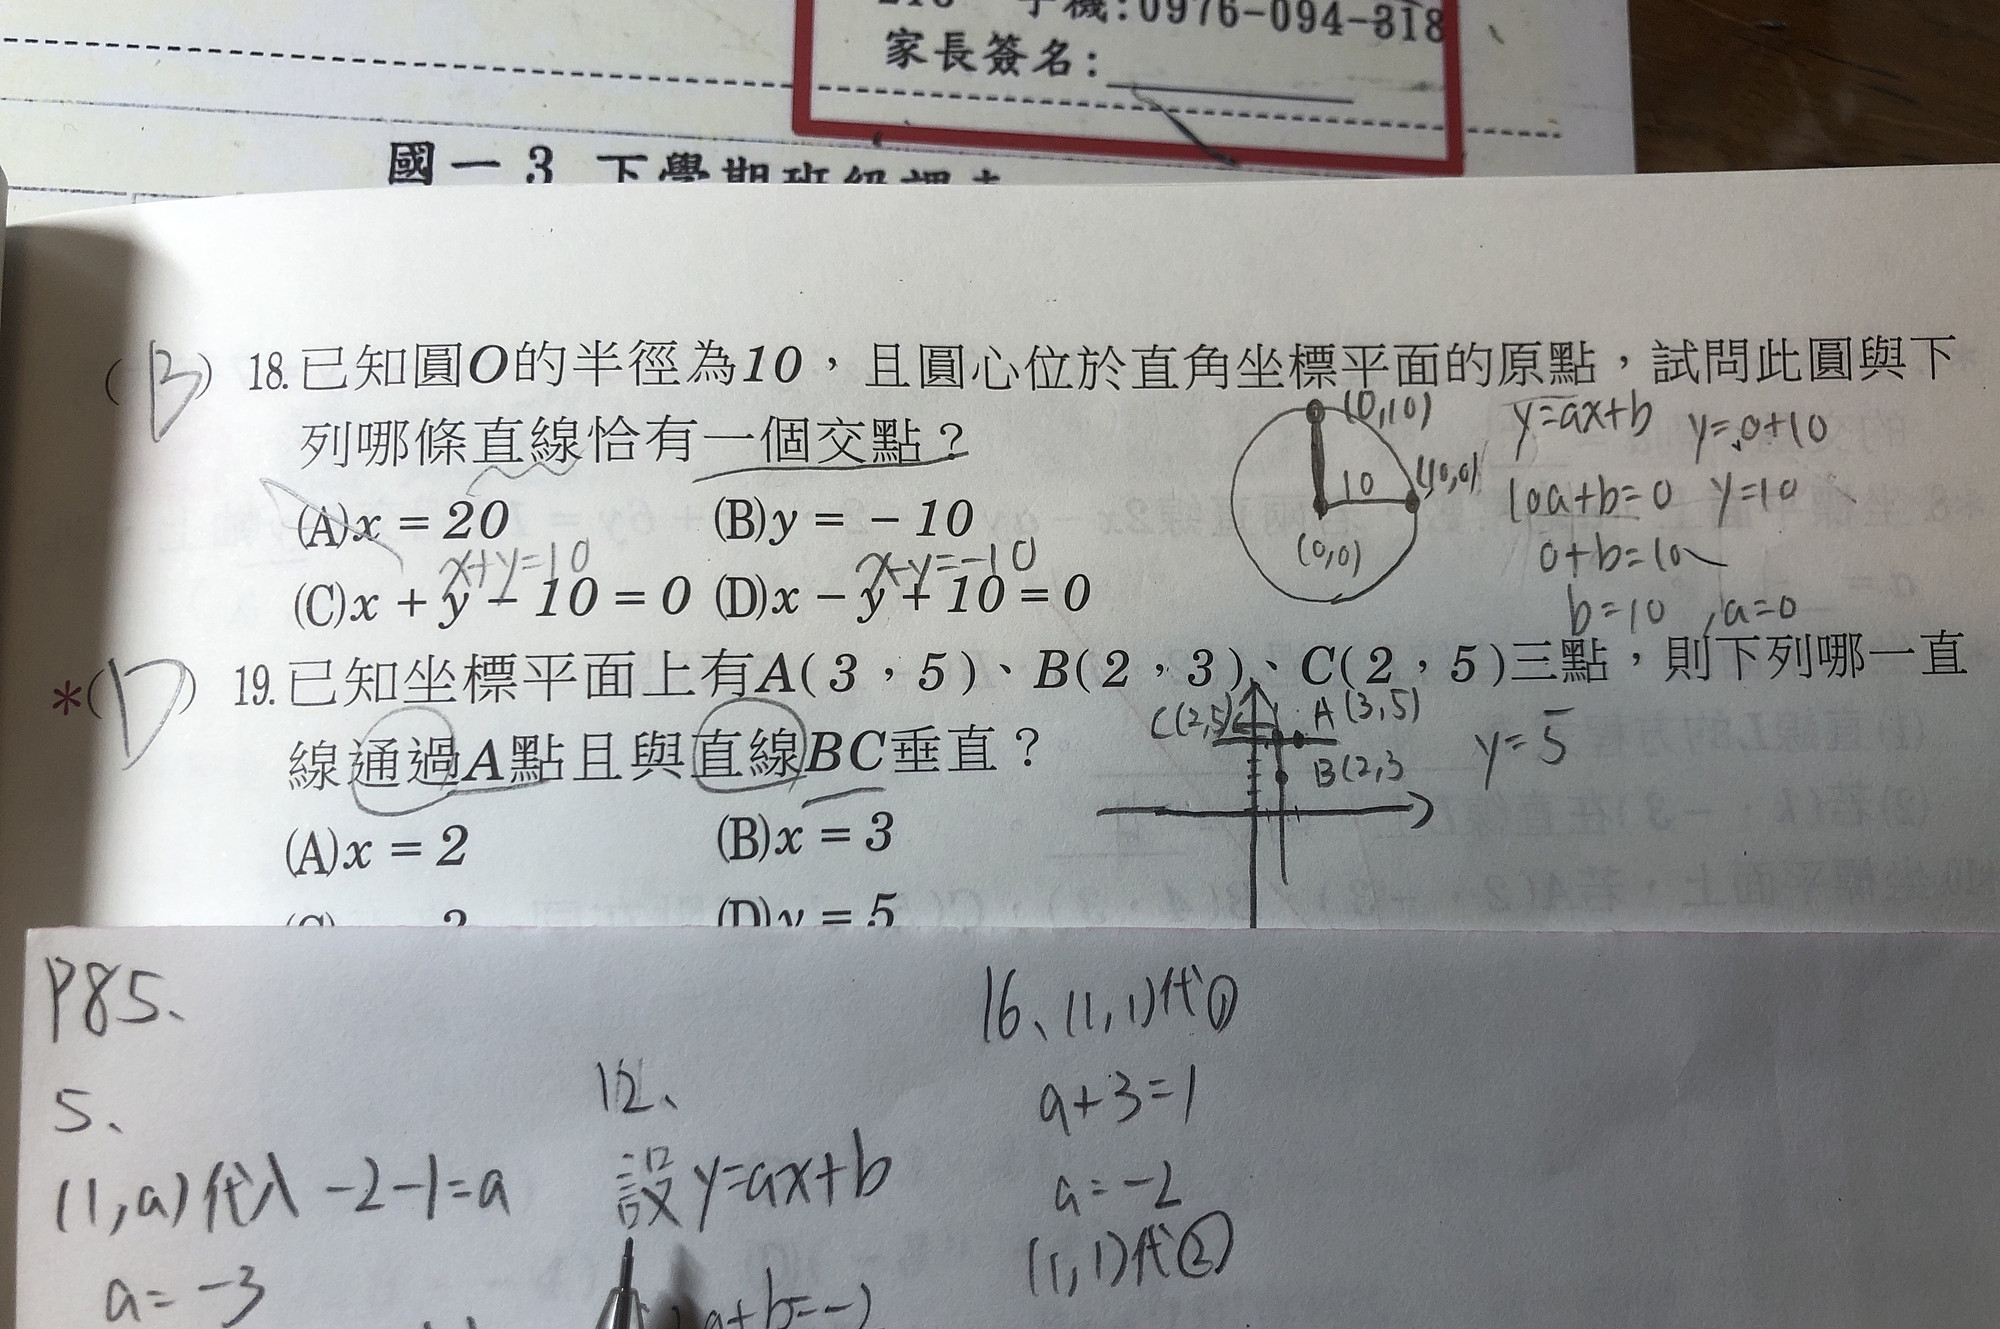 手機:0976-094-318
家長簽名:
國一3 下學期班級課表
(B) 18.已知圓O的半徑為10，且圓心位於直角坐標平面的原點，試問此圓與下
列哪條直線恰有一個交點？
(A)x = 20 (B)y = -10
x+y=10 x-y=-10
(C)x + y - 10 = 0 (D)x - y + 10 = 0
(0,10)
10 (10,0)
(0,0)
y=ax+b y=0+10
10a+b=0 y=10
0+b=10
b=10 , a=0
*(D) 19.已知坐標平面上有A(3，5)、B(2，3)、C(2，5)三點，則下列哪一直
線通過A點且與直線BC垂直？
C(2,5) A(3,5)
B(2,3
y=5
(A)x = 2 (B)x = 3
(D)y = 5
P85、
5、
(1,a)代入 -2-1=a
a=-3
12、
設y=ax+b
a+b=-2
16、(1,1)代①
a+3=1
a=-2
(1,1)代②